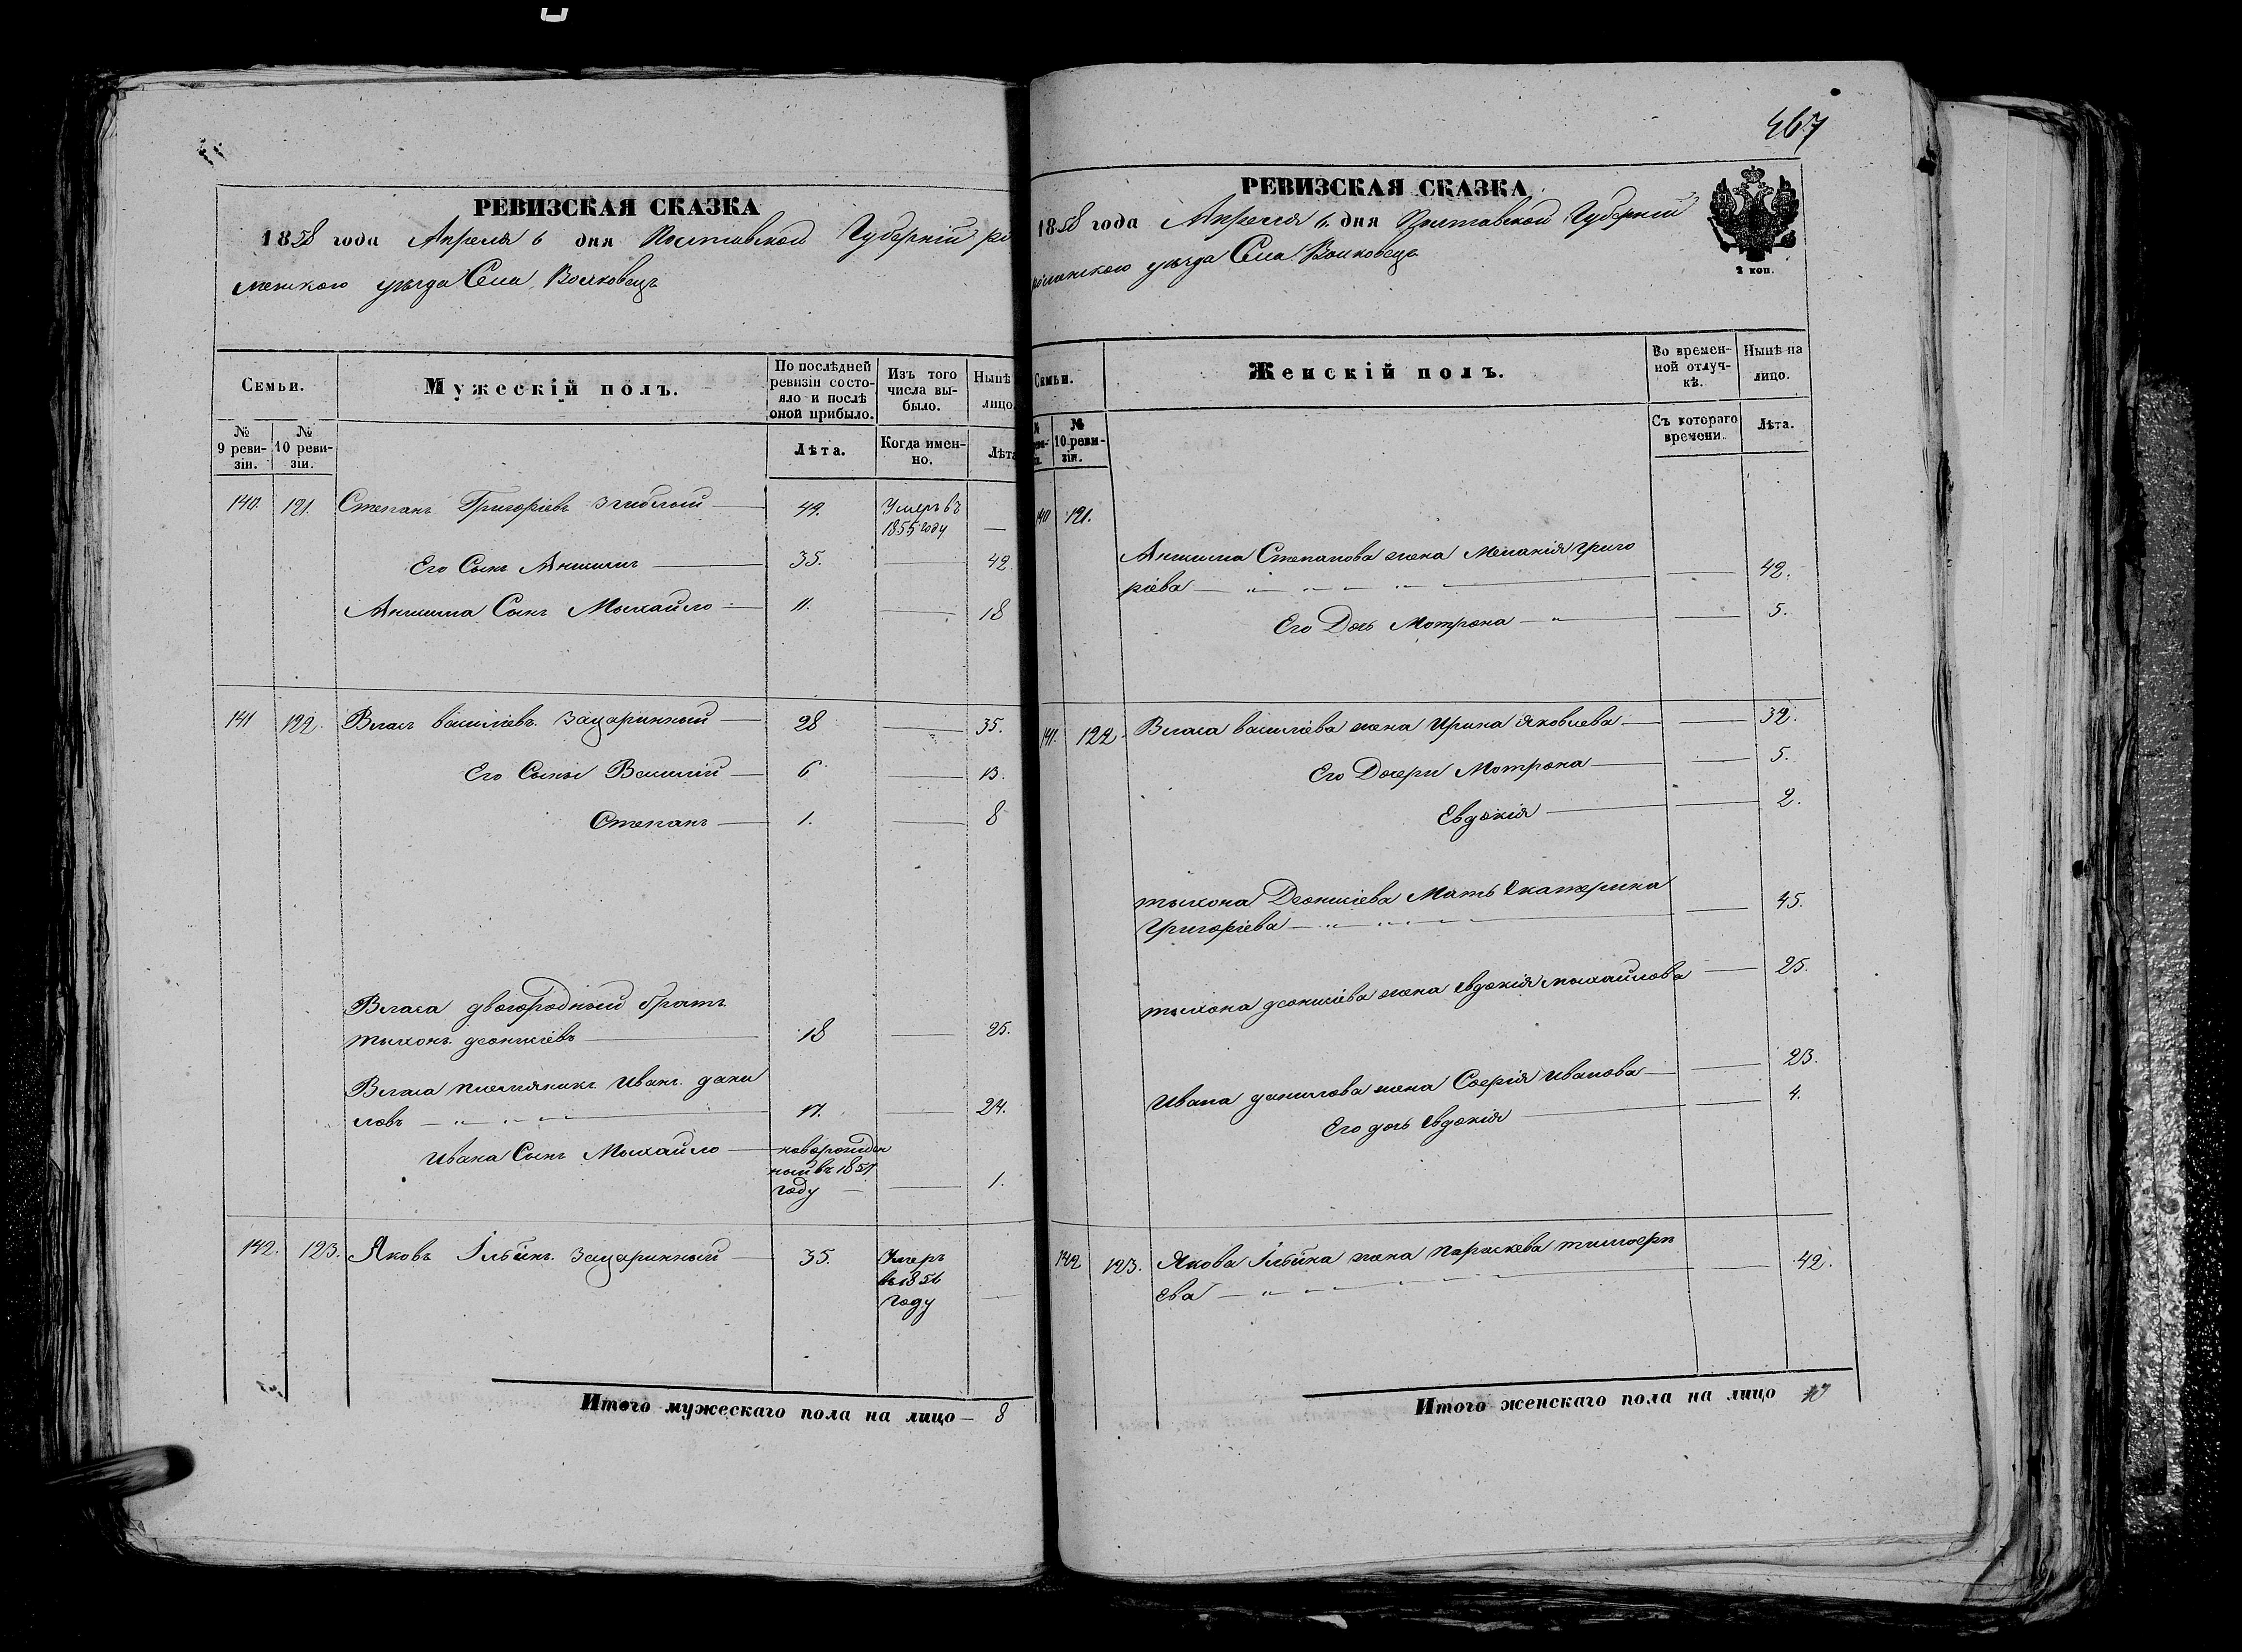 РЕВИЗСКАЯ СКАЗКА
1858 года Апреля 6 дня Полтавской Губерніи ро
менского уѣзда Села Волковецъ
Семьи.
Мужескій полъ.
По послѣдней ревизіи состояло и послѣ оной прибыло.
Изъ того числа выбыло.
Нынѣ
лицо.
№ 9 ревизіи.
№ 10 ревизіи.
Лѣта.
Когда именно.
Лѣта
140. 121. Степанъ Григоріевъ 49. Умеръ въ
1855 году —
Его Сынъ Акимъ 35. — 42.
Акима Сынъ Мыхайло 11. — 18
141 122. Власъ василіевъ Зацаринный 28 — 35.
Его Сыны Василій 6 — 13.
Степанъ 1. — 8
Власа двоюродный братъ
тыхонъ леонтіевъ 18 — 25.
Власа племяникъ Иванъ дани
ловъ — " — " — 17. — 24.
Ивана Сынъ Мыхайло новорожден
ный въ 1857
году — — 1.
142. 123. Яковъ Ильинъ Зацаринный 35. Умеръ
въ 1856
году —
Итого мужескаго пола на лицо — 8
467
РЕВИЗСКАЯ СКАЗКА
1858 года Апреля 6. дня Полтавской Губерніи
роменского уѣзда Села Волковецъ
2 коп.
Семьи.
Женскій полъ.
Во временной отлучкѣ.
Нынѣ на лицо.
№ 10 ревизіи.
Съ котораго времени.
Лѣта.
140 121.
Акима Степанова жена Меланія Григо
ріева — " — " — 42.
Его Дочь Мотрона — " — 5.
141. 122. Власа василіева жена Ирина Яковлева — 32.
Его Дочери Мотрона — 5.
Евдокія — 2.
тыхона Леонтіева Мать Екатерина
Григоріева — " — " — 45.
тыхона леонтіева жена Евдокія мыхайлова — 25.
Ивана данилова жена Софія Иванова — 23.
Его дочь Евдокія — 4.
142 123. Якова Ильина жена параскева тимофе
ева — " — " — 42.
Итого женскаго пола на лицо 10